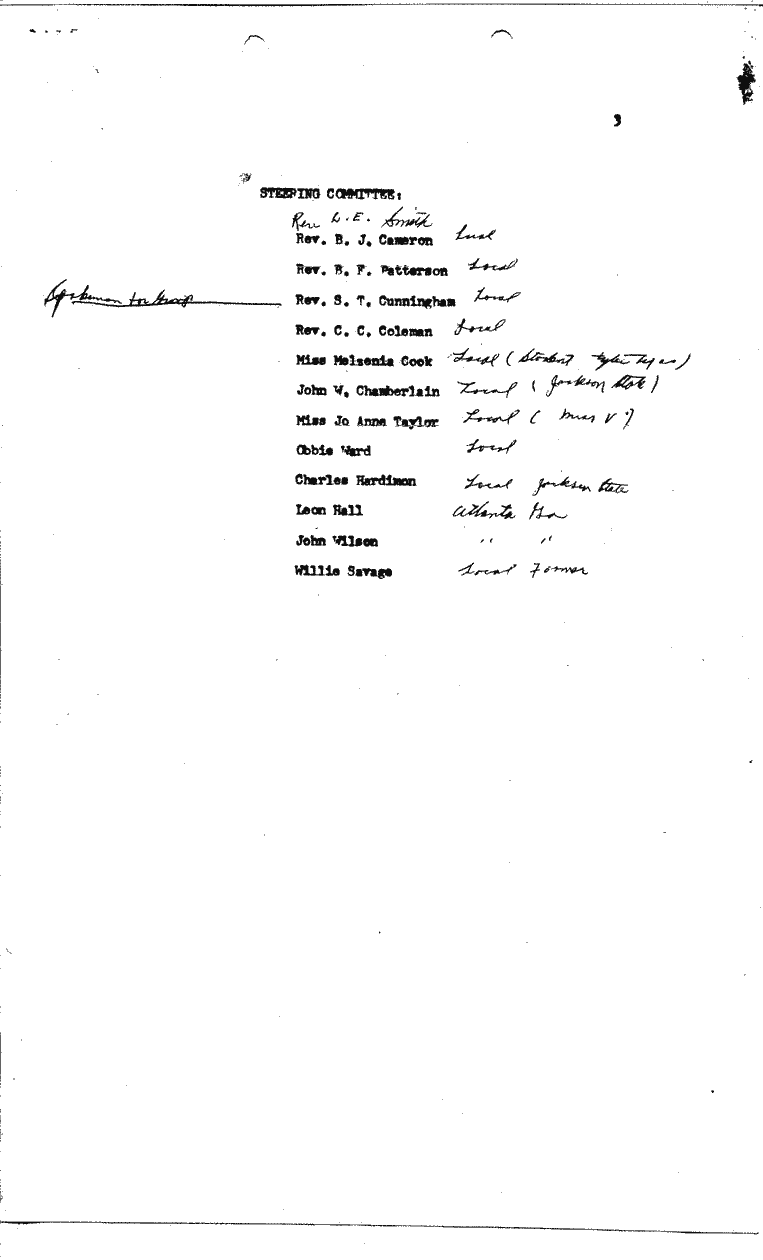 3
STEERING COMMITTEE:
Rev L. E. Smith
Rev. B. J. Cameron Local
Rev. B. F. Patterson Local
Spokesman for Group Rev. S. T. Cunningham Local
Rev. C. C. Coleman Local
Miss Melsenia Cook Local (Student Tyler Texas)
John W. Chamberlain Local (Jackson State)
Miss Jo Anna Taylor Local ( Miss V )
Obbie Ward Local
Charles Hardimon Local Jackson State
Leon Hall Atlanta Ga
John Wilson " "
Willie Savage Local Former